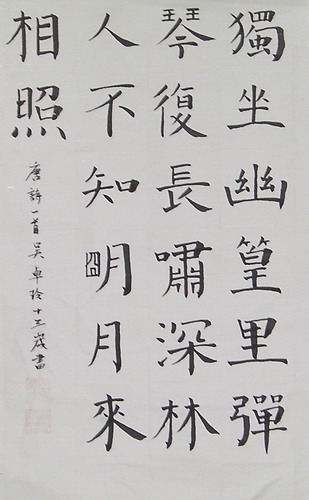 獨坐幽篁里彈
琴復長嘯深林
人不知明月來
相照
唐詩一首吳卓玲十三歲書